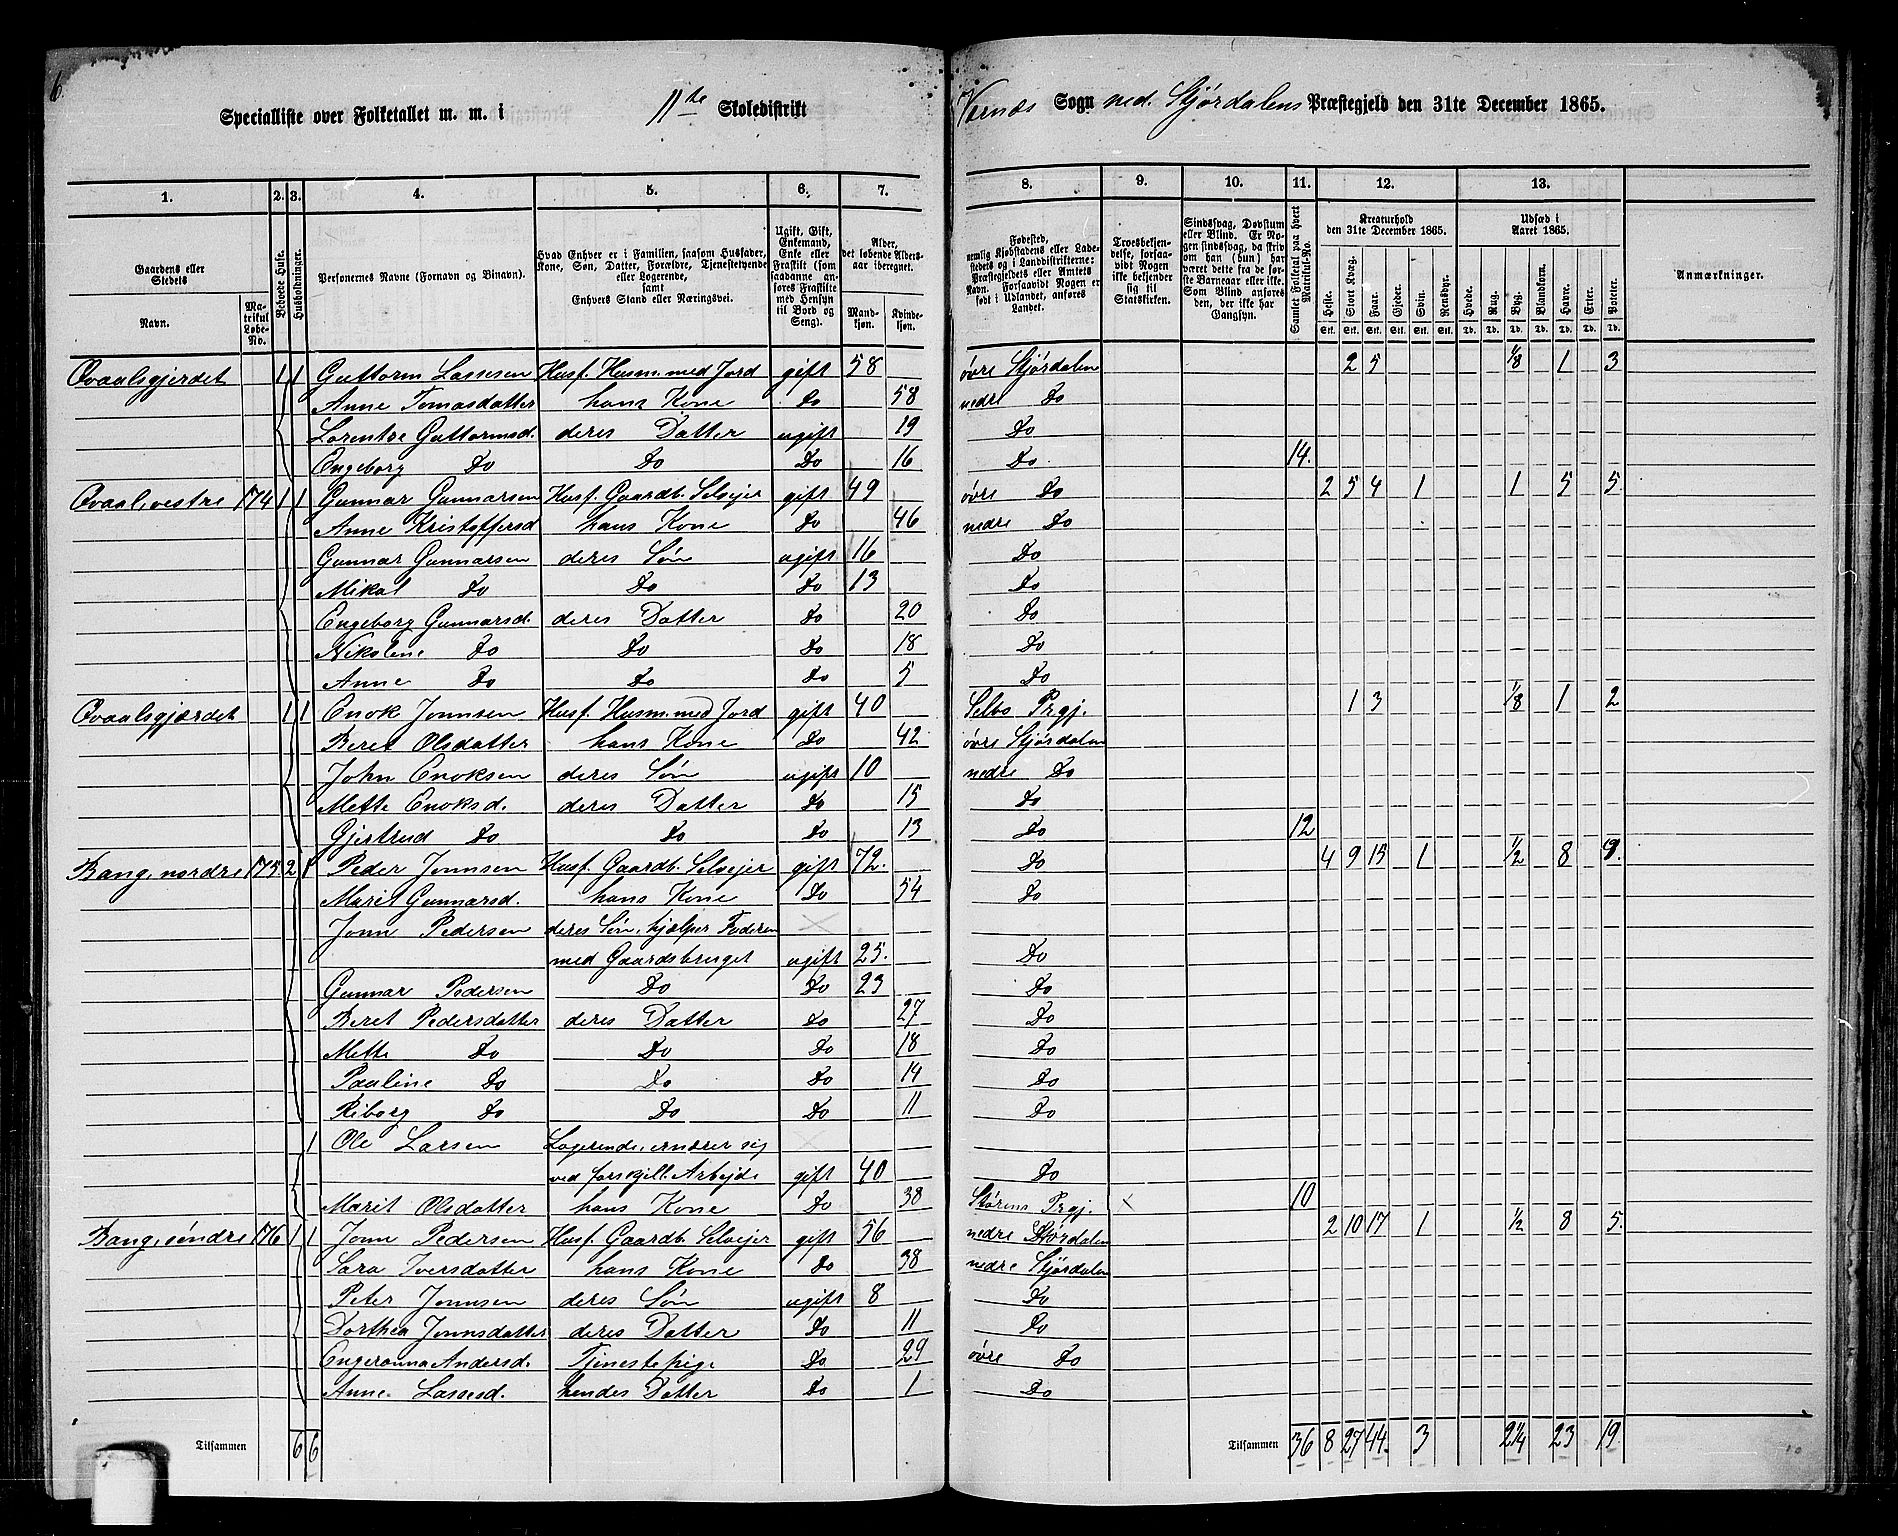 6
Specialliste over Folketallet m. m. i 11te Skoledistrikt Værnæs Sogn ned. Stjørdalens Præstegjeld den 31te December 1865.
1. 2. 3. 4. 5. 6. 7. 8. 9. 10. 11. 12. 13.
Gaardens eller Stedets Navn. Matrikul Løbe-No. Beboede Huse. Husholdninger. Personernes Navne (Fornavn og Binavn).
Hvad Enhver er i Familien, saasom Husfader, Kone, Søn, Datter, Forældre, Tjenestetyende eller Logerende, samt Enhvers Stand eller Næringsvei.
Ugift, Gift, Enkemand, Enke eller Fraskilt (som saadanne anføres Fraskilte med Hensyn til Bord og Seng).
Alder, det løbende Aldersaar iberegnet. Mandkjøn. Kvindekjøn.
Fødested, nemlig Kjøbstadens eller Ladestedets og i Landdistrikterne: Præstegjeldets eller Amtets Navn. Forsaavidt Nogen er født i Udlandet, anføres Landet.
Troesbekjendelse, forsaavidt Nogen ikke bekjender sig til Statskirken.
Sindssvag, Døvstum eller Blind. Er Nogen sindssvag, da skriv om han (hun) har været dette fra de første Barneaar eller ikke. Som Blind anføres den, der ikke har Gangsyn.
Samlet Folketal paa hvert Matrikul-No.
Kreaturhold den 31te December 1865. Heste. Stort Kvæg. Faar. Gjeder. Svin. Rensdyr.
Udsæd i Aaret 1865. Hvede. Rug. Byg. Blandkorn. Havre. Erter. Poteter.
Anmærkninger.
Stk. Stk. Stk. Stk. Stk. Stk. Td. Td. Td. Td. Td. Td. Td.
Qvaalsgjerdet 1 1 Guttorm Lassesen Husf. Husm. med Jord gift 58 øvre Stjørdalen 2 5 1/8 1 3
Anne Tomasdatter hans Kone Do 58 nedre Do
Lorentse Guttormsd. deres Datter ugift 19 Do
Engeborg Do Do Do 16 Do 14.
Qvaal, vestre 174 1 1 Gunnar Gunnarsen Husf. Gaardb. Selvejer gift 49 øvre Do 2 5 4 1 1 5 5
Anne Kristoffersd hans Kone Do 46 nedre Do
Gunnar Gunnarsen deres Søn ugift 16 Do
Mikal Do Do Do 13 Do
Engeborg Gunnarsd. deres Datter Do 20 Do
Nikoline Do Do Do 18 Do
Anne Do Do Do 5 Do
Qvaalsgjærdet 1 1 Enok Jonnsen Husf. Husm. med Jord gift 40 Selbo Prgj. 1 3 1/8 1 2
Beret Olsdatter hans Kone Do 42 øvre Stjørdalen
John Enoksen deres Søn ugift 10 nedre Do
Mette Enoksd. deres Datter Do 15 Do
Gjertrud Do Do Do 13 Do 12
Bang, nordre 175. 2 1 Peder Jonnsen Husf. Gaardb. Selvejer gift 72. Do 4 9 15 1 1/2 8 9.
Marit Gunnarsd. hans Kone Do 54 Do
Jonn Pedersen deres Søn, hjælper Faderen
med Gaardsbruget ugift 25. Do
Gunnar Pedersen Do Do 23 Do
Beret Pedersdatter deres Datter Do 27 Do
Mette Do Do Do 18 Do
Pauline Do Do Do 14 Do
Riborg Do Do Do 11 Do
1 Ole Larsen Logerende, ernærer sig
ved forskjell. Arbejde gift 40 Do
Marit Olsdatter hans Kone Do 38 Størens Prgj. × 10
Bang, søndre 176 1 1 Jonn Pedersen Husf. Gaardb. Selvejer gift 56 nedre Stjørdalen 2 10 17 1 1/2 8 5.
Sara Iversdatter hans Kone Do 38 nedre Stjørdalen
Peter Jonnsen deres Søn ugift 8 Do
Dorthea Jonnsdatter deres Datter Do 11 Do
Engeranna Andersd. Tjenestepige Do 29 øvre Do
Anne Lassesd. hendes Datter Do 1 Do
Tilsammen 6 6 Tilsammen 36 8 27 44. 3 2 1/4 23 19